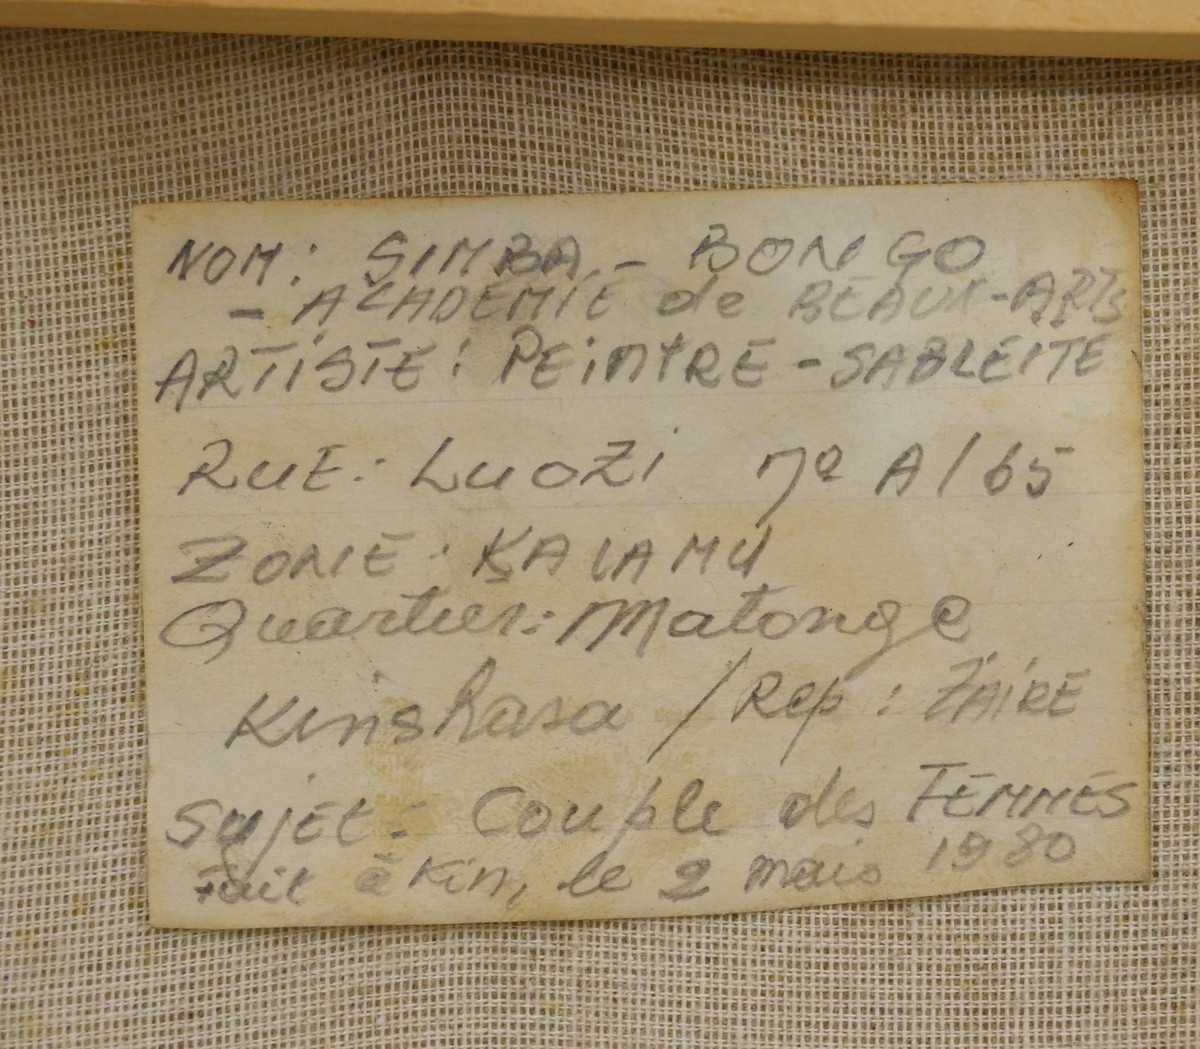 NOM: SIMBA - BONGO
- ACADEMIE de BEAUX-ARTS
ARTISTE: PEINTRE - SABLEITE
RUE: LUOZI nº A/65
ZONE: KALAMU
Quartier: Matonge
Kinshasa / Rep: ZAIRE
Sujet: Couple des FEMMES
Fait à Kin, le 2 mais 1980